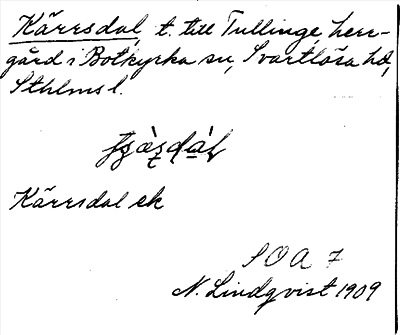 Kärrsdal, t. till Tullinge herr-
gård i Botkyrka sn, Svartlösa hd,
Sthlms l.
Kärrsdal ek
SOA 7
N. Lindqvist 1909